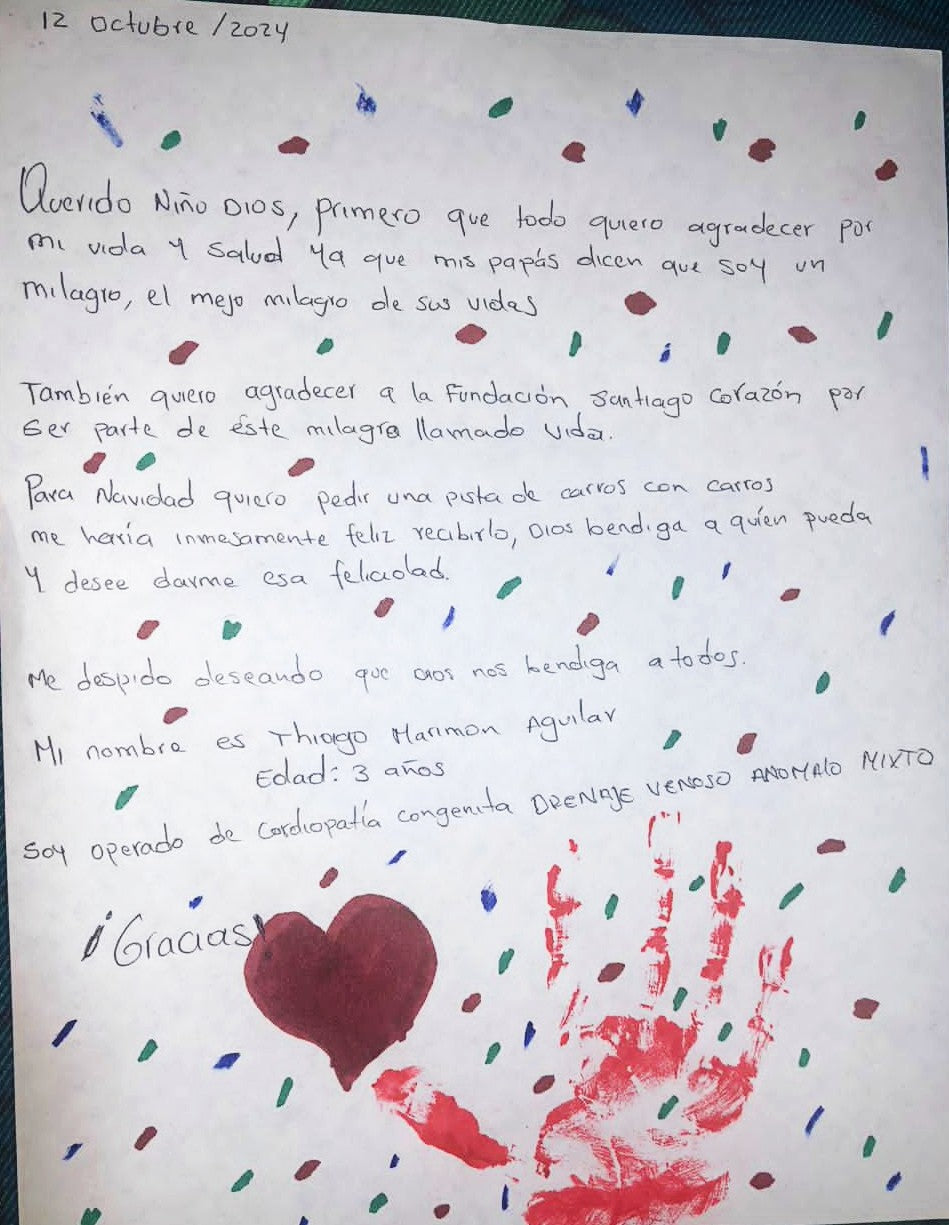 12 Octubre /2024
Querido Niño Dios, primero que todo quiero agradecer por
mi vida y salud ya que mis papás dicen que soy un
milagro, el mejo milagro de sus vidas
También quiero agradecer a la Fundación Santiago Corazón por
ser parte de éste milagro llamado vida.
Para Navidad quiero pedir una pista de carros con carros
me haría inmesamente feliz recibirlo, Dios bendiga a quíen pueda
y desee darme esa felicidad.
Me despido deseando que Dios nos bendiga a todos.
Mi nombre es Thiago Marimon Aguilar
Edad: 3 años
Soy operado de Cardiopatía congenita DRENAJE VENOSO ANOMALO MIXTO
¡Gracias!